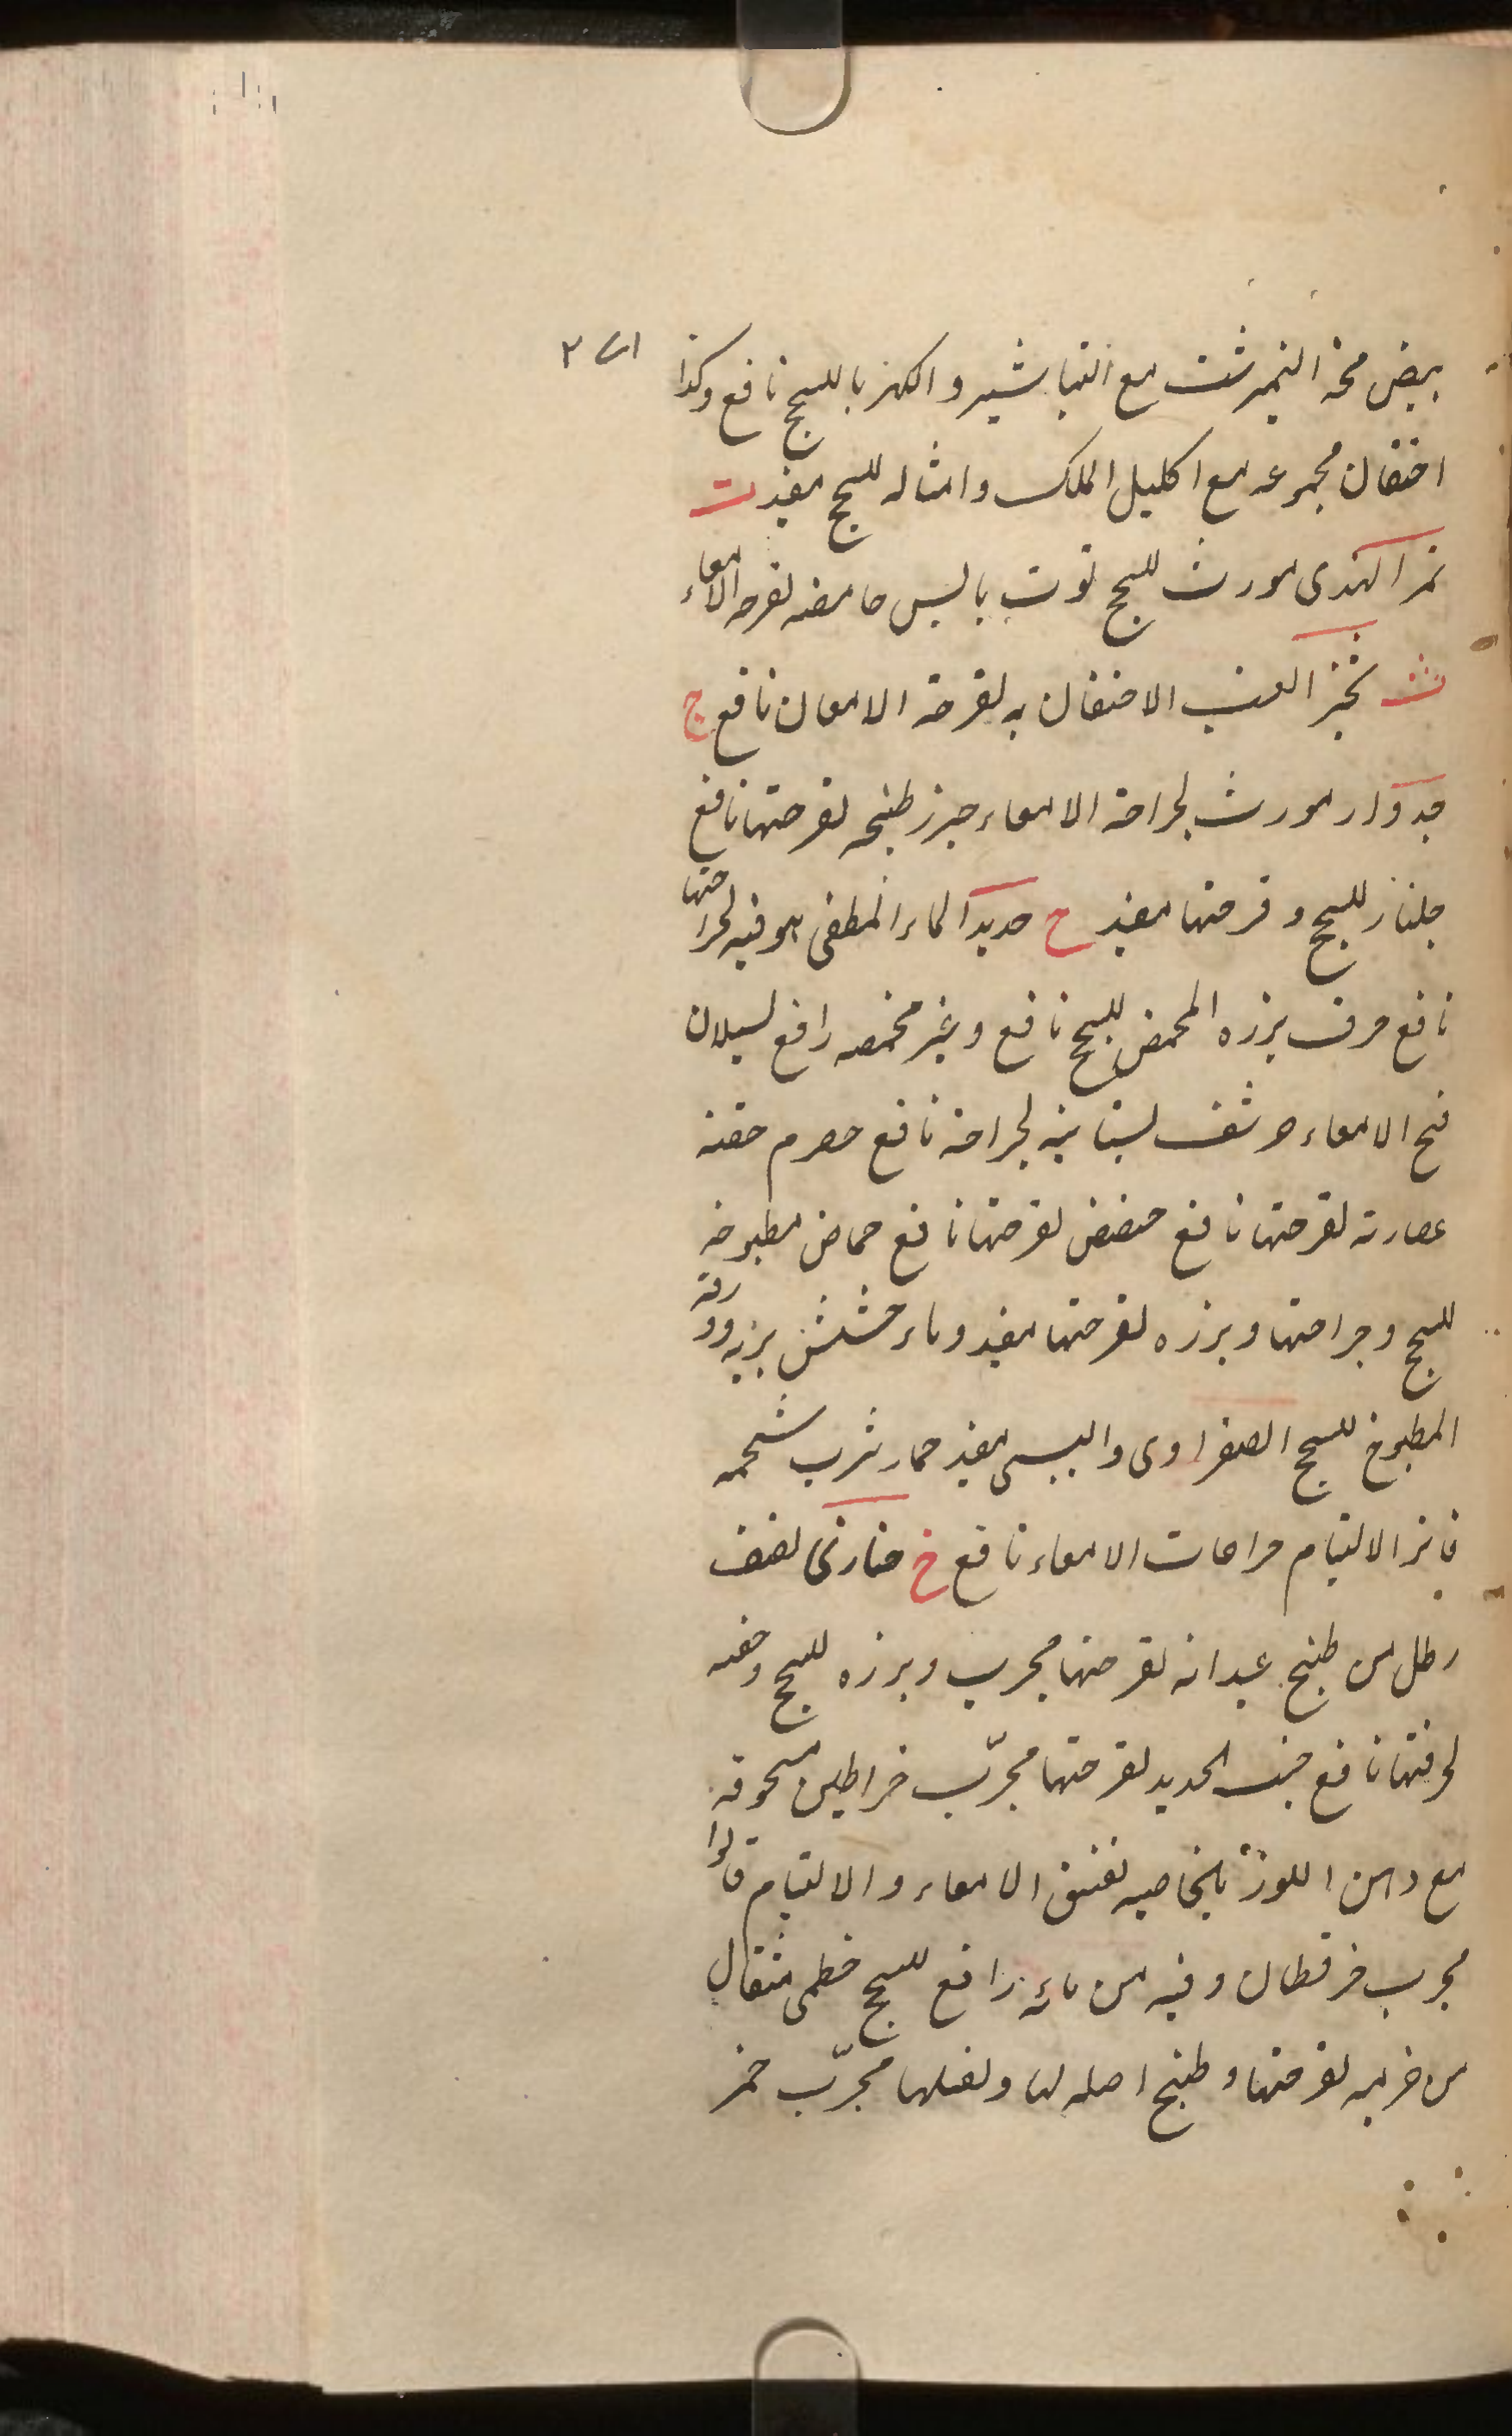 بيض مخه النيمرشت مع التباشير والكهربا للسحج نافع وكذا
احتقان مجموعه مع اكليل الملك وامثاله للسحج مفيد ت
تمر الهندى مورث للسحج توت يابس حامضه لقرحه الامعاء
ث ثجير العنب الاحتقان به لقرحة الامعان نافع ج
جدوار مورث لجراحة الامعاء جزر طبخه لقرحتها نافع
جلنار للسحج وقرحتها مفيد ح حديد الماء المطفى هو فيه لجراحتها
نافع حرف بزره المحمض للسحج نافع وغير محمصه رافع لسيلان
قيح الامعاء حرشف بستانيه لجراحته نافع حصرم حقنه
عصارته لقرحتها نافع حضض لقرحتها نافع حماض مطبوخه
للسحج وجراحتها وبزره لقرحتها مفيد وماء بزريه وورقه
المطبوخ للسحج الصفراوى واليبسى مفيد حمار شرب شحمه
فانزا لالتيام جراحات الامعاء نافع خ خبازى نصف
رطل من طبخ عيدانه لقرحتها مجرب وبزره للسحج وحقنه
لحرقتها نافع خبث الحديد لقرحتها مجرّب خراطين مسحوقه
مع دهن اللوز بالخاصيه لفتق الامعاء والالتيام قالوا
مجرب خرقطان وفيه من مائه رافع للسحج خطمى مثقال
من لقرحتها وطبخ اصله لها ولفتلها مجرّب خمر